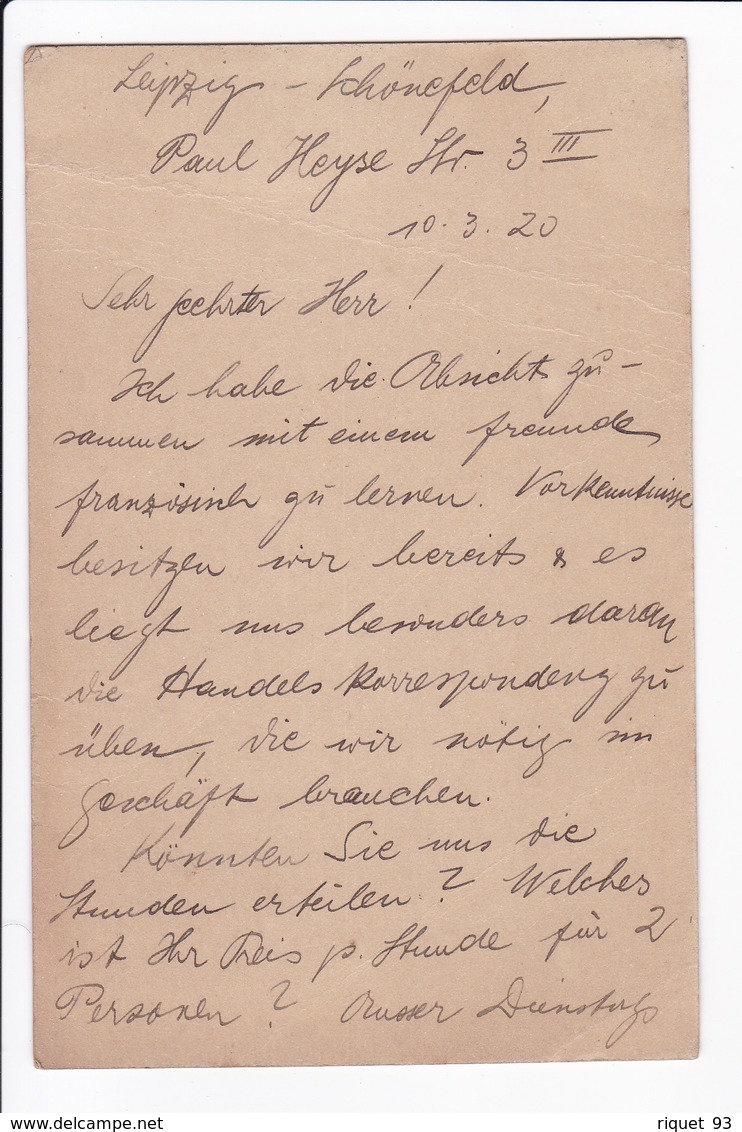 Leipzig - Schönefeld,
Paul Heyse Str. 3 III
10.3.20
Sehr geehrter Herr!
Ich habe die Absicht zu-
sammen mit einem freunde
französisch zu lernen. Vorkenntnisse
besitzen wir bereits & es
liegt uns besonders daran
die Handelskorrespondenz zu
üben, die wir nötig im
Geschäft brauchen.
Könnten Sie uns die
Stunden erteilen? Welches
ist Ihr Preis p. Stunde für 2
Personen? Ausser Dienstags
www.delcampe.net
riquet 93